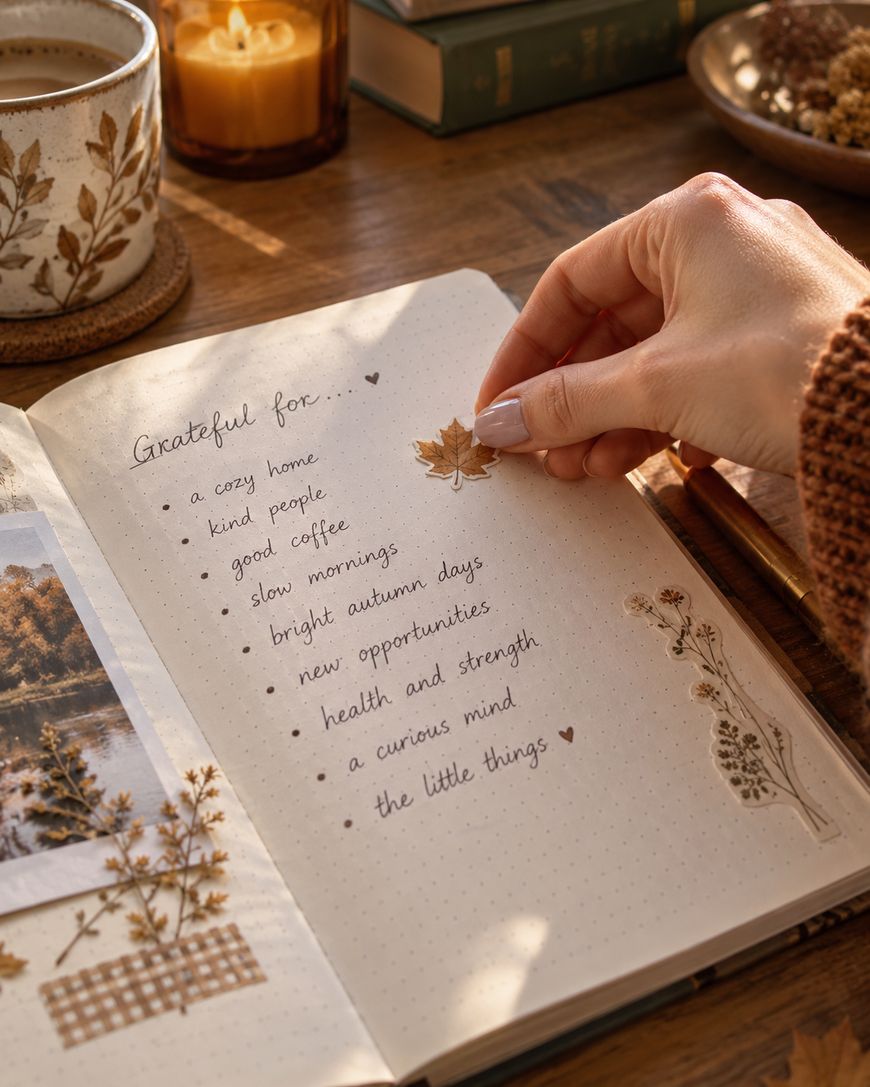 Grateful for... ♥
• a cozy home
• kind people
• good coffee
• slow mornings
• bright autumn days
• new opportunities
• health and strength
• a curious mind
• the little things ♥